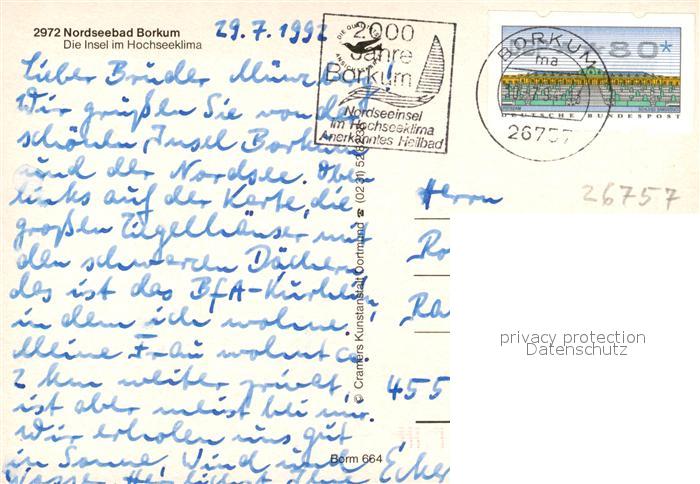 2972 Nordseebad Borkum
Die Insel im Hochseeklima
29.7.1992
2000
Jahre
Borkum
Nordseeinsel
im Hochseeklima
Anerkanntes Heilbad
BORKUM
ma
26757
80*
DEUTSCHE BUNDESPOST
Lieber Bruder
Wir grüßen Sie von der
schönen Insel Borkum
und der Nordsee. Oben
links auf der Karte, die
großen Ziegelhäuser mit
den schwarzen Dächern
das ist das BfA-Kurklin,
in dem ich wohne.
Meine Frau wohnt ca.
2 km weiter privat,
ist aber meist bei mir.
Wir erholen uns gut
in Sonne, Wind und
Wasser. Herzlichst Ihre
© Cramers Kunstanstalt Dortmund ☎ (0231)
Borm 664
Herrn
26757
455
privacy protection
Datenschutz